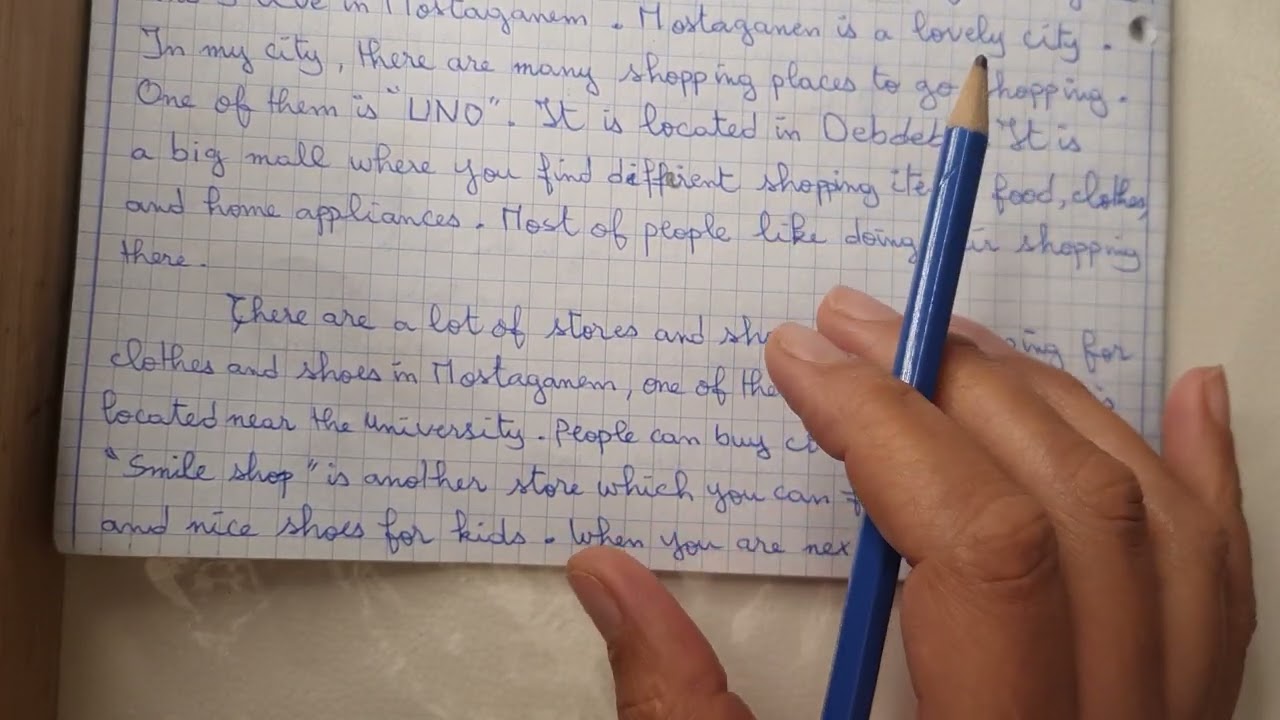 in Mostaganem. Mostaganen is a lovely city.
In my city, there are many shopping places to go shopping.
One of them is "UNO". It is located in It is
a big mall where you find different shopping food, clothes,
and home appliances. Most of people like doing shopping
there.
There are a lot of stores and for
clothes and shoes in Mostaganem, one of
located near the university. People can buy
"Smile shop" is another store which you can
and nice shoes for kids. When you are